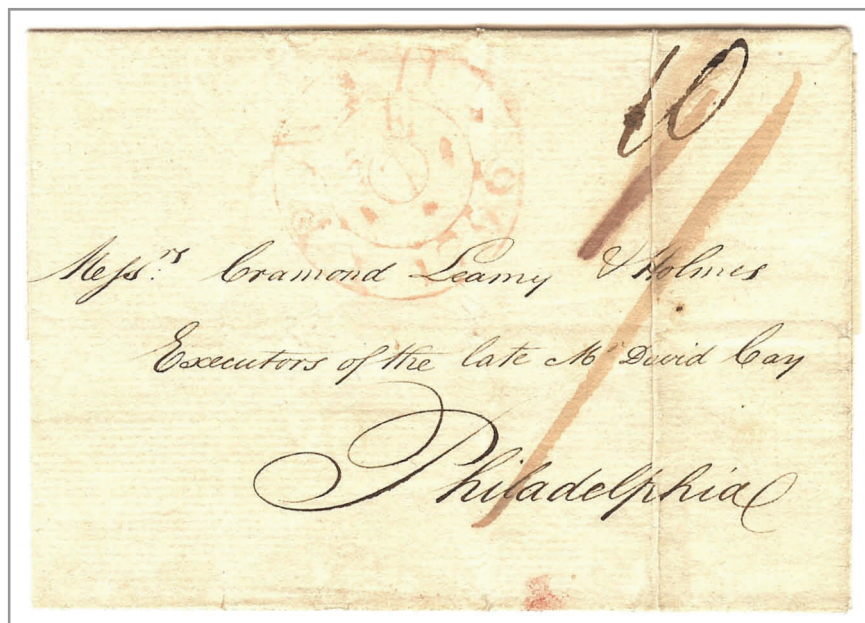 10
Messrs Cramond Leamy & Holmes
Executors of the late Mr David Cay
Philadelphia